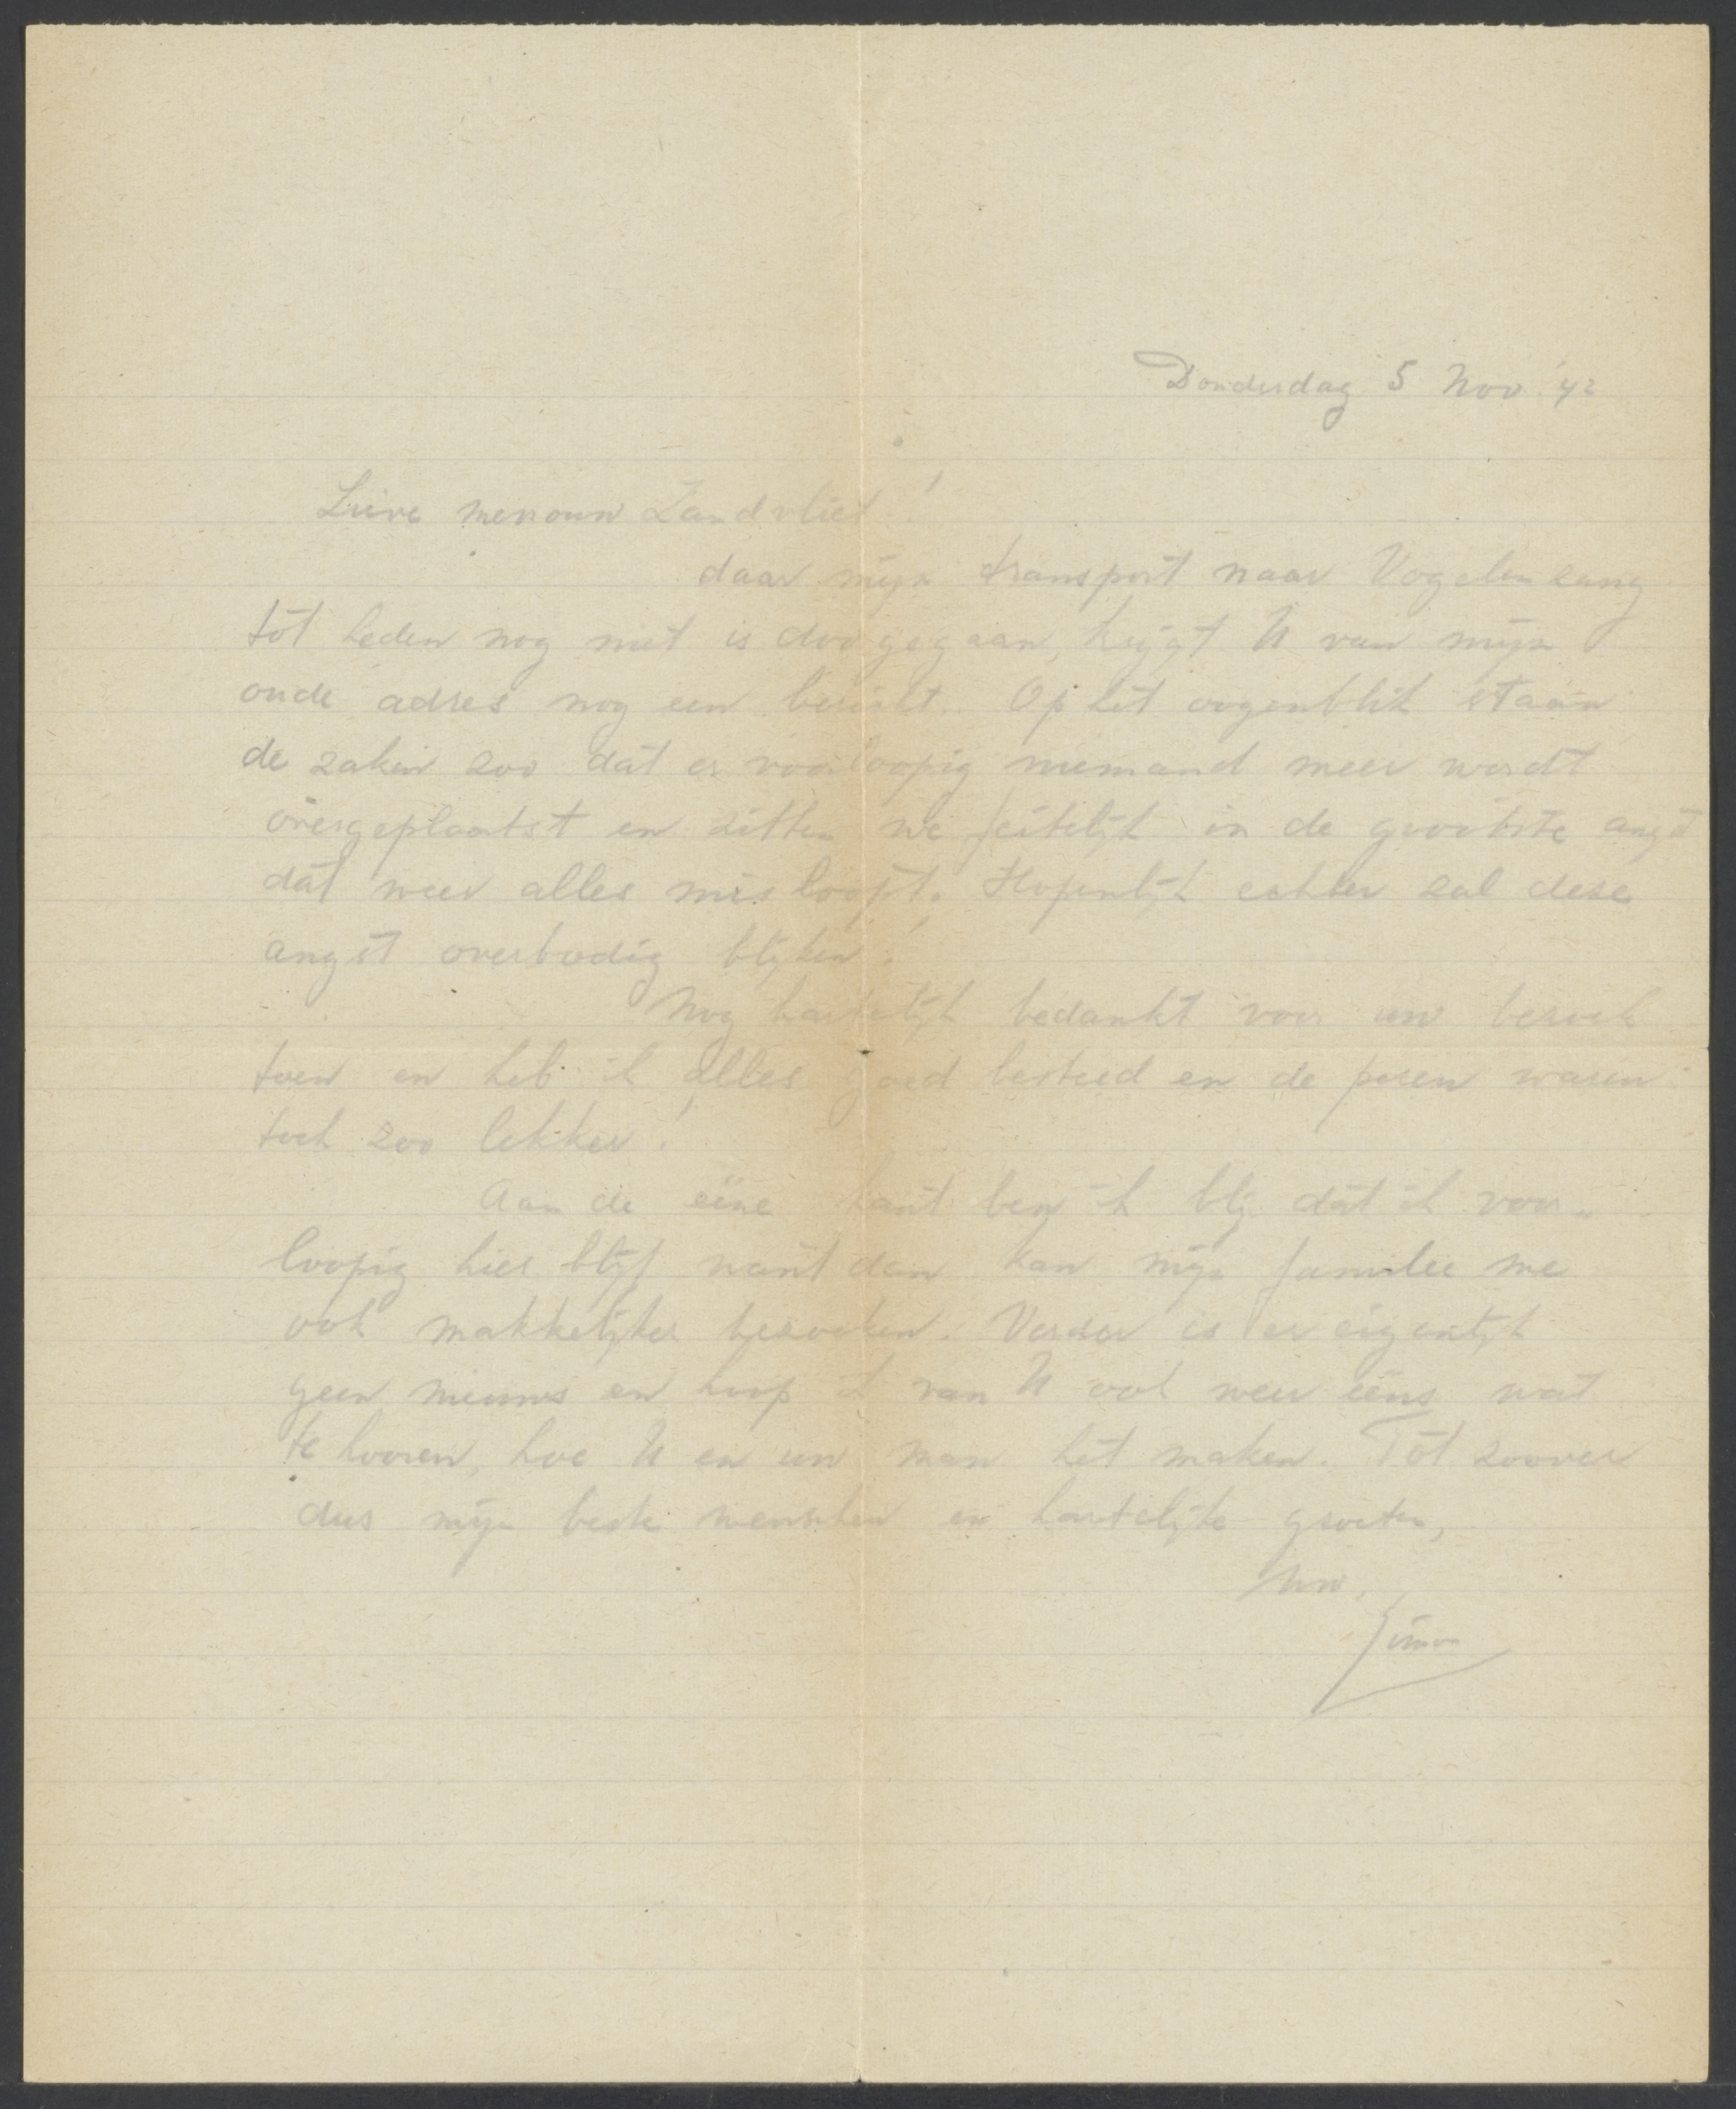 Donderdag 5 Nov. '42
Lieve mevrouw Zandvliet!
daar mijn transport naar Vogelenzang
tot heden nog niet is doorgegaan, krijgt U van mijn
oude adres nog een bericht. Op het oogenblik staan
de zaken zoo dat er voorloopig niemand meer wordt
overgeplaatst en zitten we feitelijk in de grootste angst
dat weer alles mis loopt. Hopenlijk echter zal deze
angst overbodig blijken!
Nog hartelijk bedankt voor uw bezoek
toen en heb ik alles goed besteed en de peren waren
toch zoo lekker!
Aan de eéne kant ben ik blij dat ik voor-
loopig hier blijf want dan kan mijn familie me
ook makkelijker bezoeken. Verder is er eigenlijk
geen nieuws en hoop ik van U ook weer eens wat
te hooren, hoe U en uw man het maken. Tot zoover
dus mijn beste menschen en hartelijke groeten,
Uw,
Simon